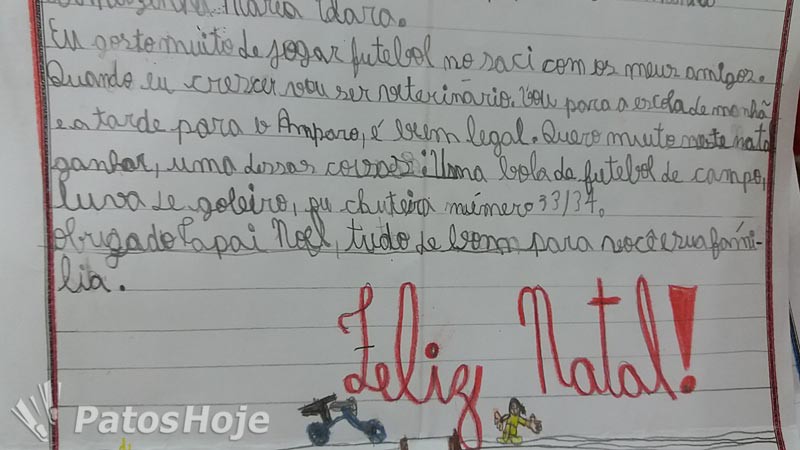 Maria Idara.
Eu gosto muito de jogar futebol no saci com os meus amigos.
Quando eu crescer vou ser veterinário. Vou para a escola de manhã
e a tarde para o Amparo, é bem legal. Quero muito neste natal
ganhar, uma dessas coisas: Uma bola de futebol de campo,
luva de goleiro, ou chuteira número 33/34.
Obrigado Papai Noel, tudo de bom para você e sua famí-
lia.
Feliz Natal!
PatosHoje